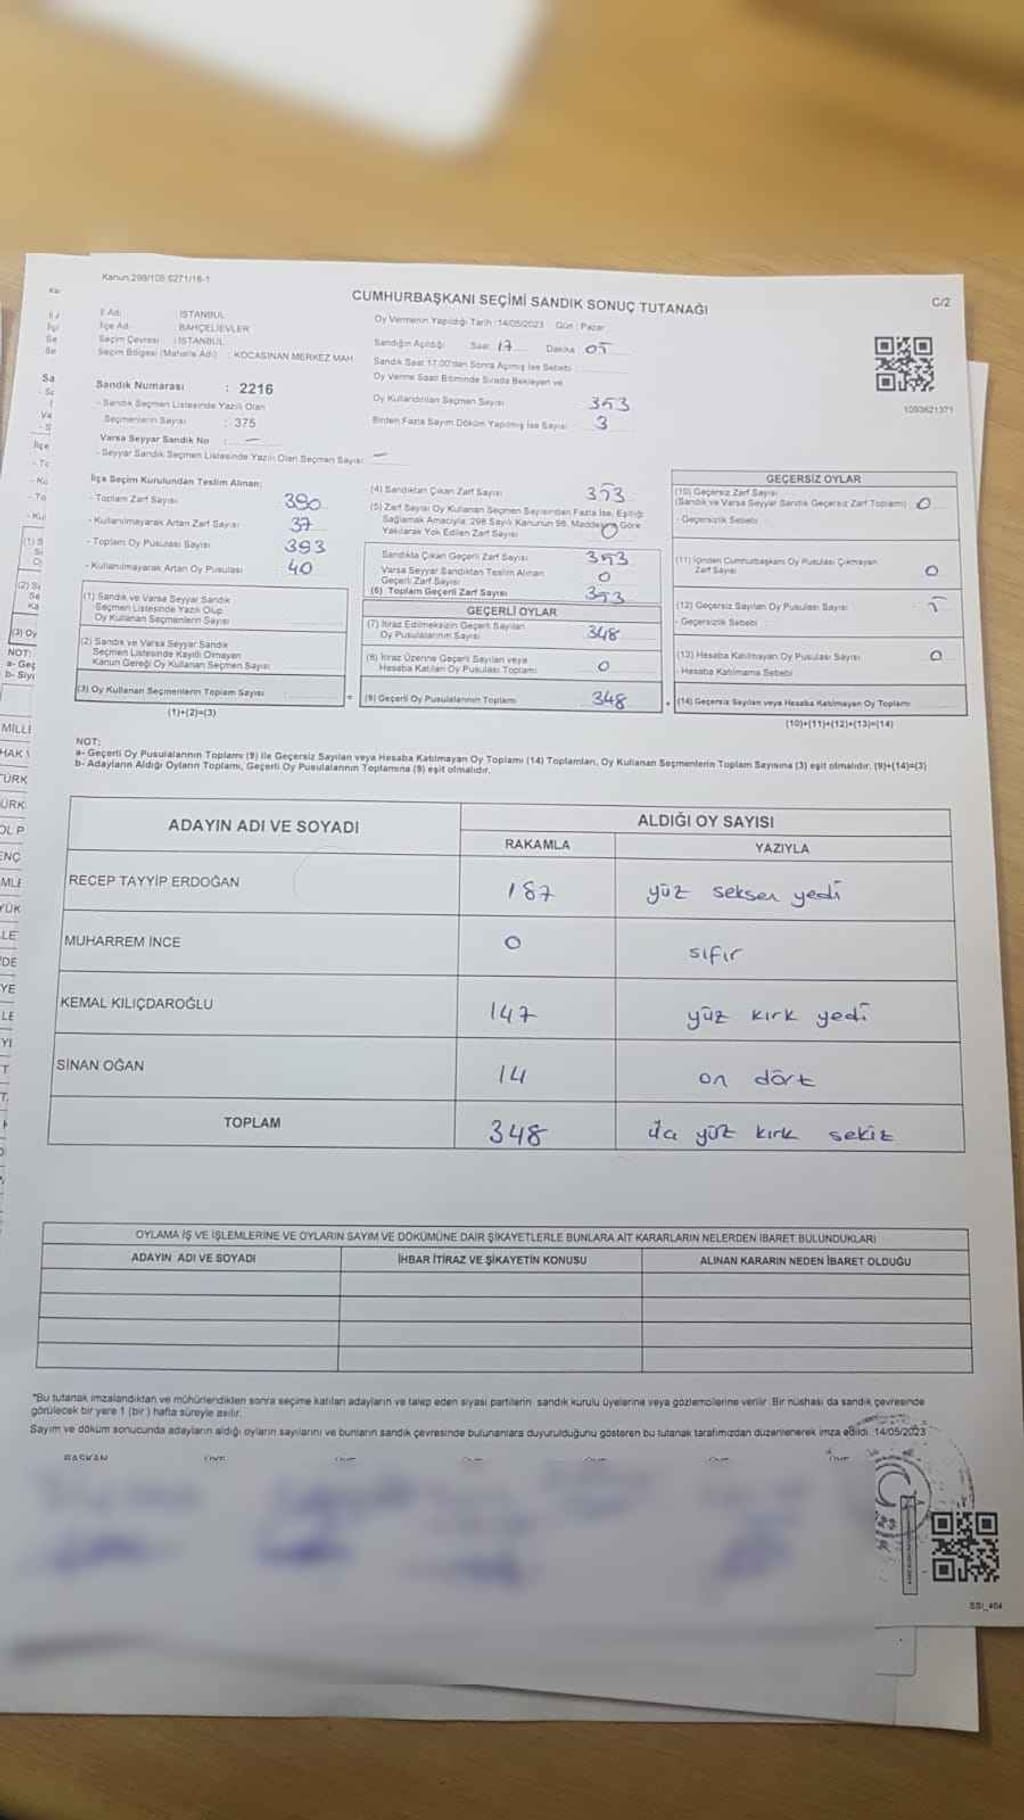 Kanun:298/105 6271/16-1
CUMHURBAŞKANI SEÇİMİ SANDIK SONUÇ TUTANAĞI
C/2
İl Adı : İSTANBUL
İlçe Adı : BAHÇELİEVLER
Seçim Çevresi : İSTANBUL
Seçim Bölgesi (Mahalle Adı) : KOCASİNAN MERKEZ MAH.
Sandık Numarası : 2216
- Sandık Seçmen Listesinde Yazılı Olan
Seçmenlerin Sayısı : 375
Varsa Seyyar Sandık No : —
- Seyyar Sandık Seçmen Listesinde Yazılı Olan Seçmen Sayısı: —
Oy Vermenin Yapıldığı Tarih :14/05/2023 Gün : Pazar
Sandığın Açıldığı Saat 17 Dakika 05
Sandık Saat 17:00'dan Sonra Açılmış İse Sebebi
Oy Verme Saati Bitiminde Sırada Bekleyen ve
Oy Kullandırılan Seçmen Sayısı 353
Birden Fazla Sayım Döküm Yapılmış İse Sayısı 3
1093621371
İlçe Seçim Kurulundan Teslim Alınan:
- Toplam Zarf Sayısı 390
- Kullanılmayarak Artan Zarf Sayısı 37
- Toplam Oy Pusulası Sayısı 393
- Kullanılmayarak Artan Oy Pusulası 40
(1) Sandık ve Varsa Seyyar Sandık
Seçmen Listesinde Yazılı Olup
Oy Kullanan Seçmenlerin Sayısı
(2) Sandık ve Varsa Seyyar Sandık
Seçmen Listesinde Kayıtlı Olmayan
Kanun Gereği Oy Kullanan Seçmen Sayısı
(3) Oy Kullanan Seçmenlerin Toplam Sayısı
(1)+(2)=(3)
(4) Sandıktan Çıkan Zarf Sayısı 353
(5) Zarf Sayısı Oy Kullanan Seçmen Sayısından Fazla İse, Eşitliği
Sağlamak Amacıyla, 298 Sayılı Kanunun 98. Maddesine Göre
Yakılarak Yok Edilen Zarf Sayısı 0
Sandıkta Çıkan Geçerli Zarf Sayısı 353
Varsa Seyyar Sandıktan Teslim Alınan
Geçerli Zarf Sayısı 0
(6) Toplam Geçerli Zarf Sayısı 353
GEÇERLİ OYLAR
(7) İtiraz Edilmeksizin Geçerli Sayılan
Oy Pusulalarının Sayısı 348
(8) İtiraz Üzerine Geçerli Sayılan veya
Hesaba Katılan Oy Pusulası Toplamı 0
(9) Geçerli Oy Pusulalarının Toplamı 348
GEÇERSİZ OYLAR
(10) Geçersiz Zarf Sayısı
(Sandık ve Varsa Seyyar Sandık Geçersiz Zarf Toplamı) 0
- Geçersizlik Sebebi
(11) İçinden Cumhurbaşkanı Oy Pusulası Çıkmayan
Zarf Sayısı 0
(12) Geçersiz Sayılan Oy Pusulası Sayısı 5
- Geçersizlik Sebebi
(13) Hesaba Katılmayan Oy Pusulası Sayısı 0
- Hesaba Katılmama Sebebi
(14) Geçersiz Sayılan veya Hesaba Katılmayan Oy Toplamı
(10)+(11)+(12)+(13)=(14)
NOT:
a- Geçerli Oy Pusulalarının Toplamı (9) ile Geçersiz Sayılan veya Hesaba Katılmayan Oy Toplamı (14) Toplamları, Oy Kullanan Seçmenlerin Toplam Sayısına (3) eşit olmalıdır. (9)+(14)=(3)
b- Adayların Aldığı Oyların Toplamı, Geçerli Oy Pusulalarının Toplamına (9) eşit olmalıdır.
ADAYIN ADI VE SOYADI
ALDIĞI OY SAYISI
RAKAMLA YAZIYLA
RECEP TAYYİP ERDOĞAN 187 yüz seksen yedi
MUHARREM İNCE 0 sıfır
KEMAL KILIÇDAROĞLU 147 yüz kırk yedi
SİNAN OĞAN 14 on dört
TOPLAM 348 üç yüz kırk sekiz
OYLAMA İŞ VE İŞLEMLERİNE VE OYLARIN SAYIM VE DÖKÜMÜNE DAİR ŞİKAYETLERLE BUNLARA AİT KARARLARIN NELERDEN İBARET BULUNDUKLARI
ADAYIN ADI VE SOYADI İHBAR İTİRAZ VE ŞİKAYETİN KONUSU ALINAN KARARIN NEDEN İBARET OLDUĞU
*Bu tutanak imzalandıktan ve mühürlendikten sonra seçime katılan adayların ve talep eden siyasi partilerin sandık kurulu üyelerine veya gözlemcilerine verilir. Bir nüshası da sandık çevresinde
görülecek bir yere 1 (bir) hafta süreyle asılır.
Sayım ve döküm sonucunda adayların aldığı oyların sayılarını ve bunların sandık çevresinde bulunanlara duyurulduğunu gösteren bu tutanak tarafımızdan düzenlenerek imza edildi. 14/05/2023
BAŞKAN